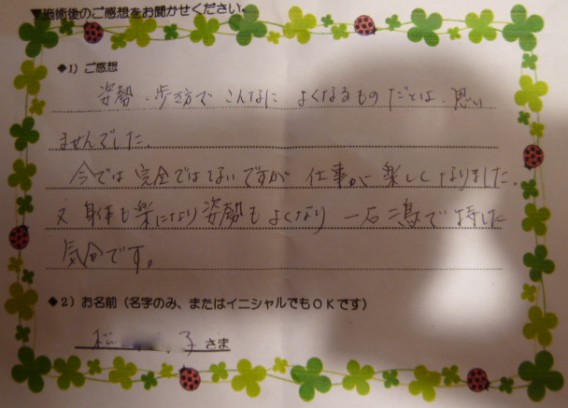 ▼施術後のご感想をお聞かせください。
◆1）ご感想
姿勢、歩き方で こんなに よくなるものだとは、思い
ませんでした。
今では完全ではないですが 仕事が楽しくなりました。
又 身体も楽になり姿勢もよくなり 一石二鳥で得した
気分です。
◆2）お名前（名字のみ、またはイニシャルでもOKです）
子さま